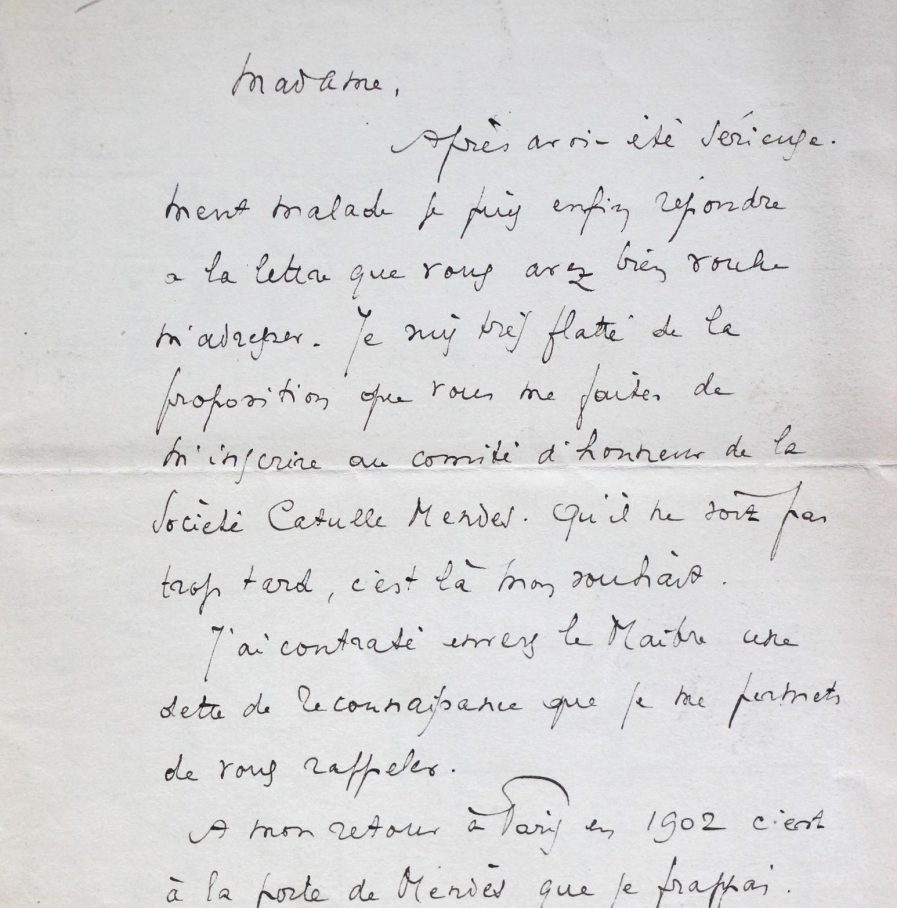 Madame,
Après avoir été sérieuse-
ment malade je puis enfin répondre
a la lettre que vous avez bien voulu
m'adresser. Je suis très flatté de la
proposition que vous me faites de
m'inscrire au comité d'honneur de la
Société Catulle Mendès. Qu'il ne soit pas
trop tard, c'est là mon souhait.
J'ai contracté envers le Maître une
dette de reconnaissance que je me permets
de vous rappeler.
A mon retour à Paris en 1902 c'est
à la porte de Mendès que je frappai.